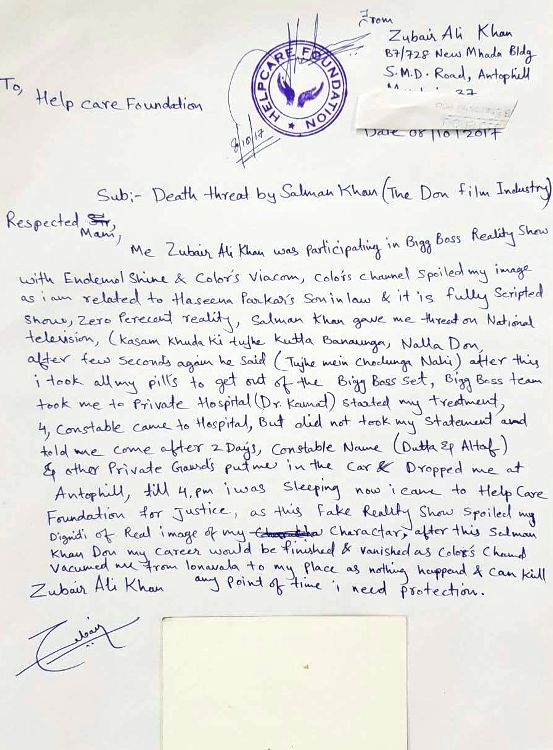 From
Zubair Ali Khan
B7/728 New Mhada Bldg
S.M.D. Road, Antophill
27
Date 08/10/2017
To,
Help care Foundation
HELPCARE FOUNDATION
8/10/17
Sub:- Death threat by Salman Khan (The Don film Industry)
Respected Sir,
Mam,
Me Zubair Ali Khan was participating in Bigg Boss Reality Show
with Endemol Shine & Color's Viacom, Colors channel spoiled my image
as i am related to Haseena Parkar's Son in law & it is fully Scripted
show, Zero Perecent reality, Salman Khan gave me threat on National
television, (Kasam Khuda Ki tujhe Kutta Banaunga, Nalla Don,
after few seconds again he said (Tujhe mein Chodunga Nahi) after this
i took all my pill's to get out of the Bigg Boss set, Bigg Boss team
took me to Private Hospital (Dr. Kamat) started my treatment,
4, Constable came to Hospital, But did not took my Statement and
told me come after 2 Days, Constable Name (Dutta & Altaf)
& other Private Gaurds put me in the Car & Dropped me at
Antophill, till 4, pm i was sleeping now i came to Help Care
Foundation for Justice, as this fake Reality Show Spoiled my
Dignidi of Real image of my Charactar, after this Salman
Khan Don my career would be finished & vanished as Color's Channel
Vacumed me from lonavala to my place as nothing happend & can kill
any point of time i need protection.
Zubair Ali Khan
Zubair